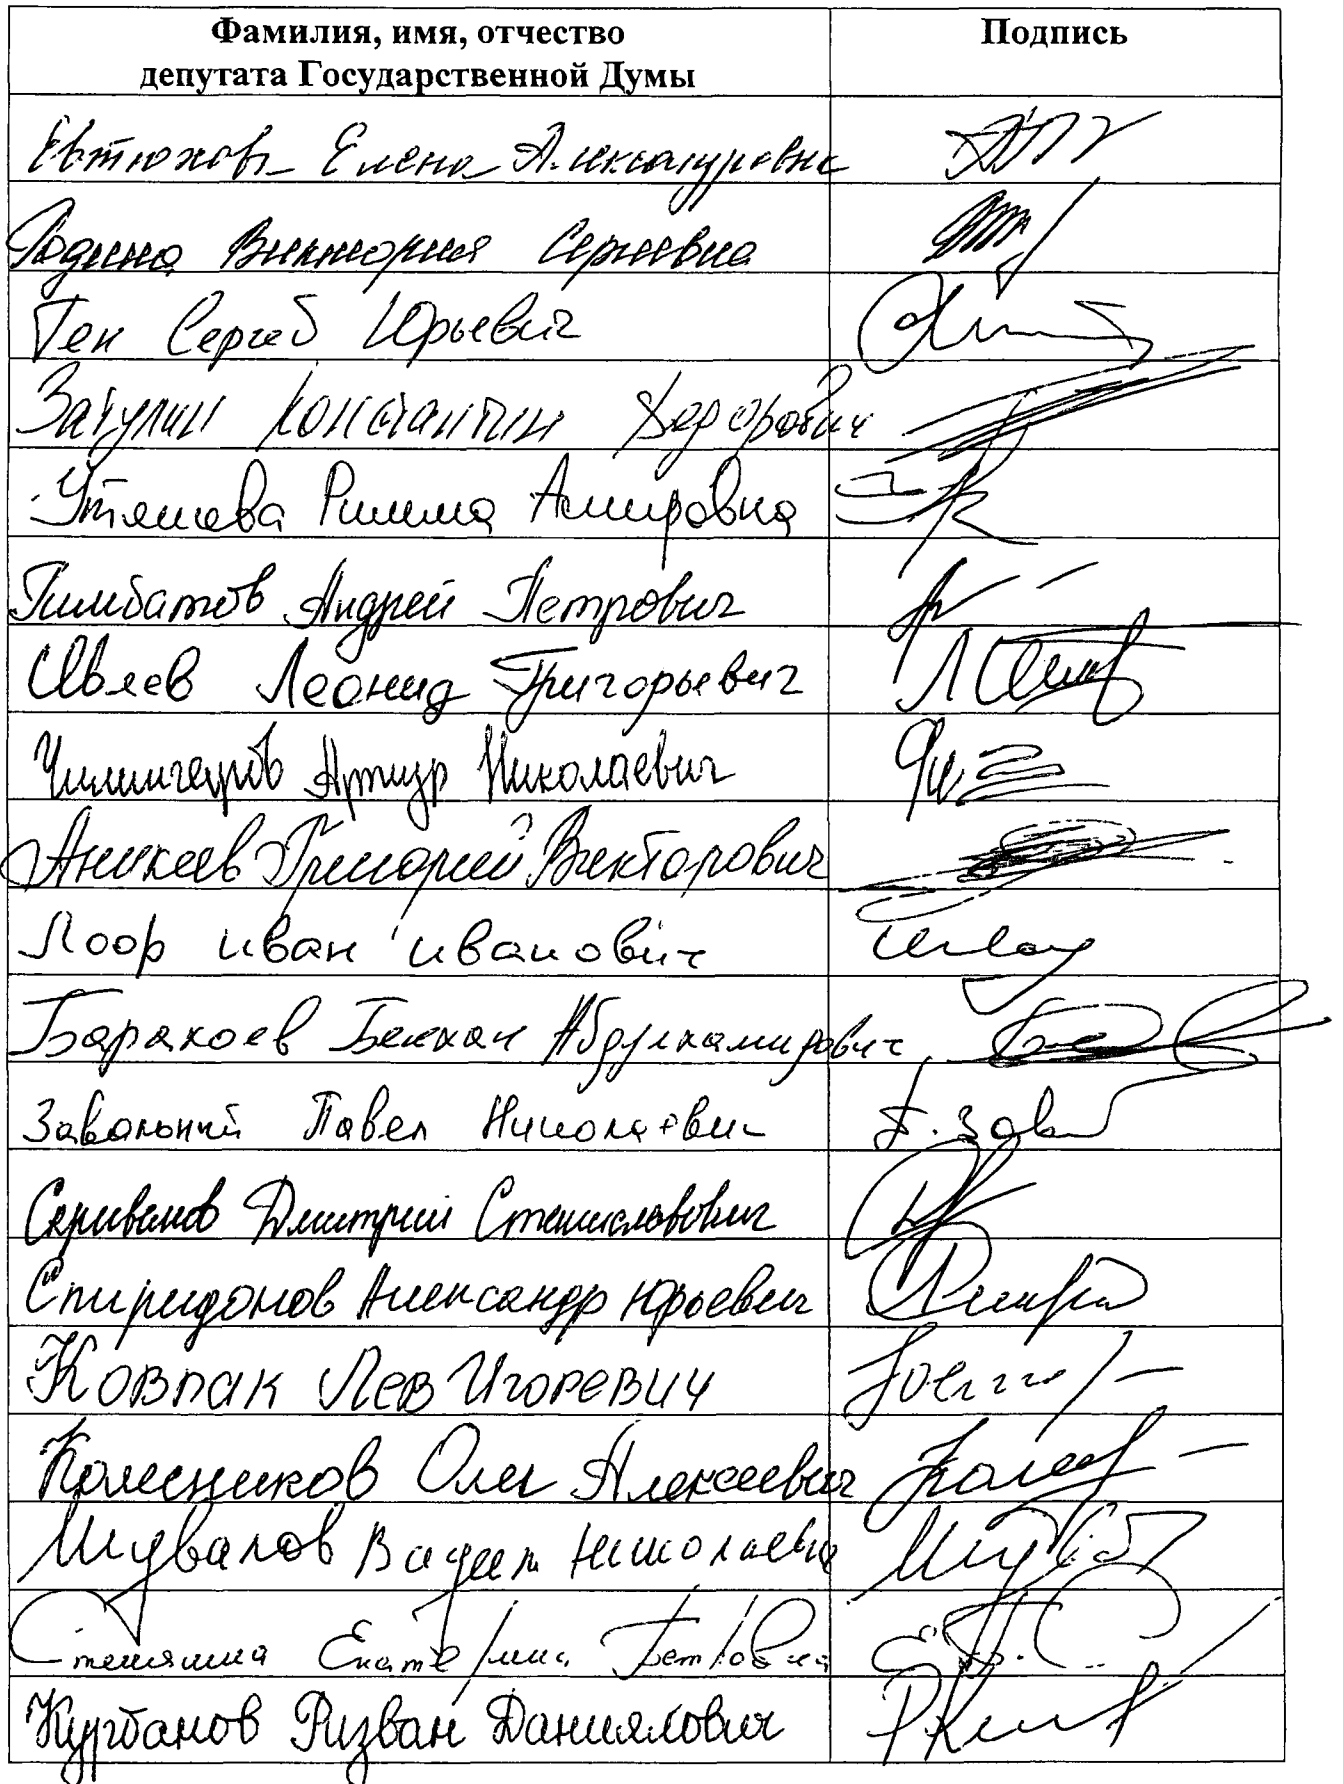 Фамилия, имя, отчество
депутата Государственной Думы
Подпись
Евтюхова Елена Александровна
Родина Виктория Сергеевна
Тен Сергей Юрьевич
Затулин Константин Федорович
Утяшева Римма Амировна
Гимбатов Андрей Петрович
Ивлев Леонид Григорьевич
Чилингаров Артур Николаевич
Аникеев Григорий Викторович
Лоор Иван Иванович
Барахоев Бекхан Абдулхамидович
Завальный Павел Николаевич
П. Зав
Скриванов Дмитрий Станиславович
Спиридонов Александр Юрьевич
Ковпак Лев Игоревич
Колесников Олег Алексеевич
Шувалов Вадим Николаевич
Стенякина Екатерина Петровна
Курбанов Ризван Даниялович